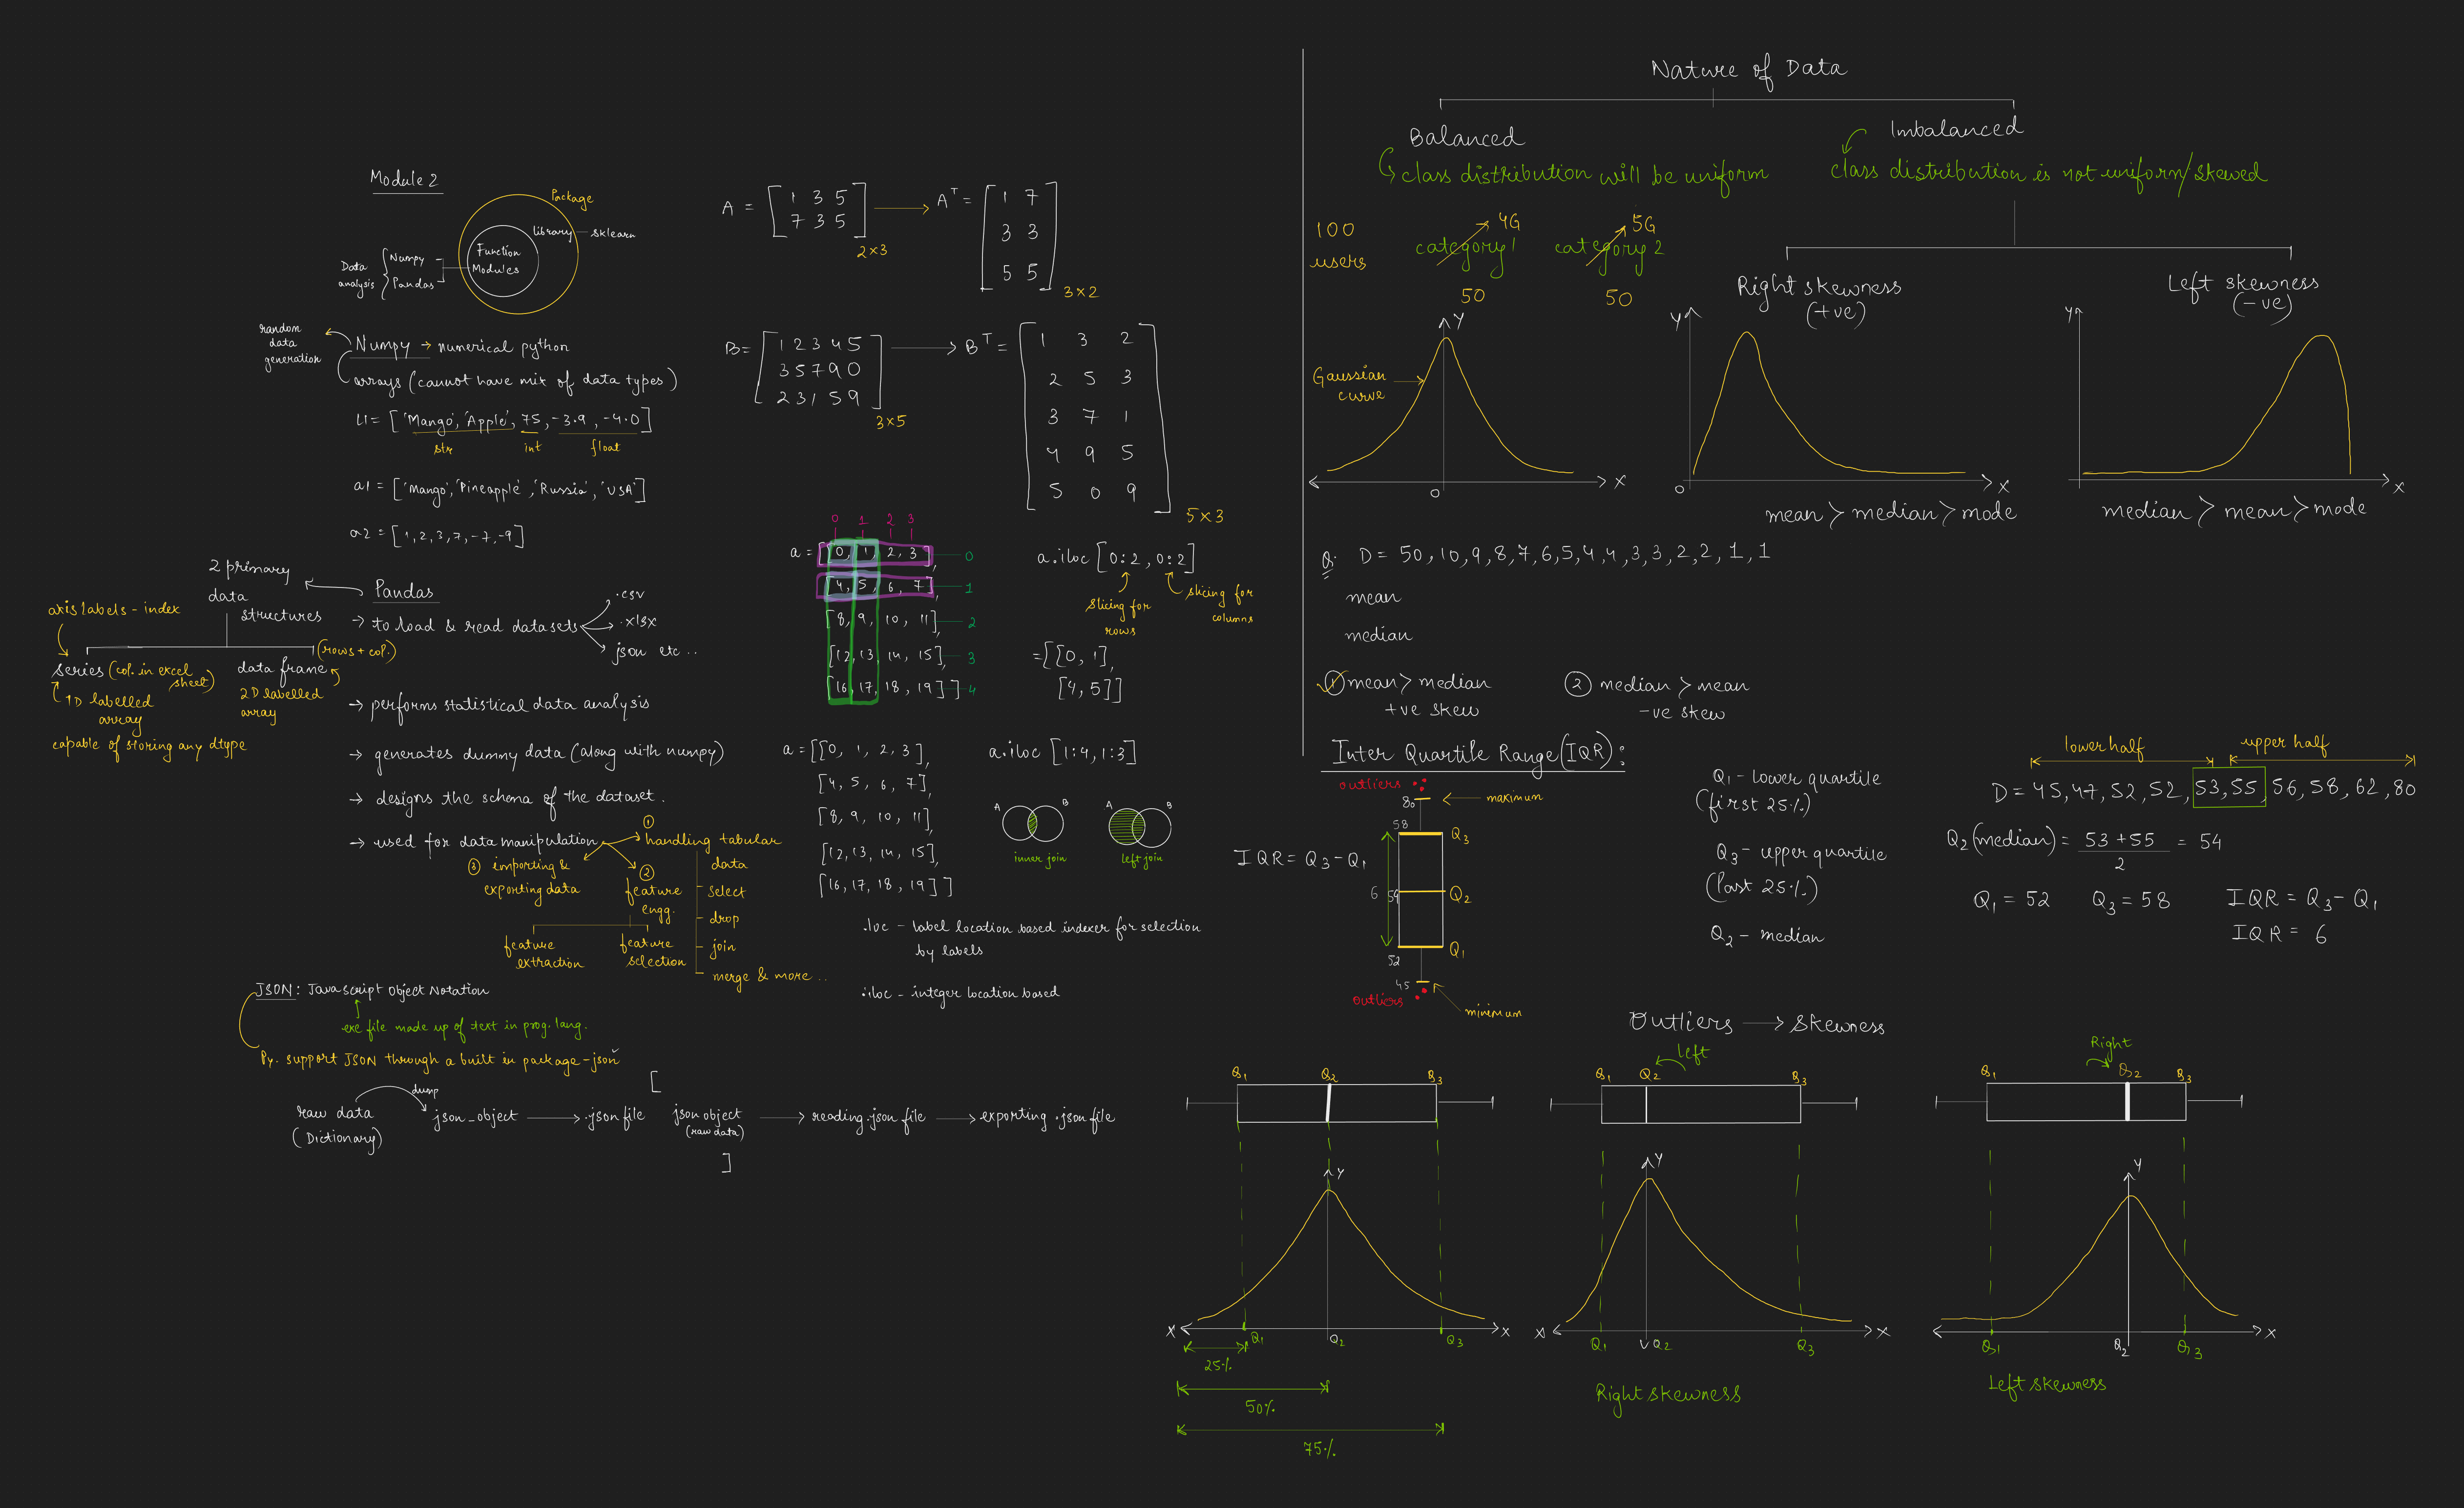 Module 2
Package
Library - sklearn
Function
Modules
Data analysis { Numpy
Pandas
random
data
generation
Numpy → numerical python
arrays (cannot have mix of data types)
L1 = ['Mango', 'Apple', 75, -3.9, -4.0]
str int float
a1 = ['Mango', 'Pineapple', 'Russia', 'USA']
a2 = [1, 2, 3, 7, -7, -9]
2 primary
data
structures
axis labels - index
series (col. in excel
sheet)
1D labelled
array
capable of storing any dtype
data frame (rows + col.)
2D labelled
array
Pandas
→ to load & read datasets
.csv
.xlsx
json etc ..
→ performs statistical data analysis
→ generates dummy data (along with numpy)
→ designs the schema of the dataset.
→ used for data manipulation
① handling tabular
data
select
drop
join
merge & more ..
② feature
engg.
feature
extraction
feature
selection
③ importing &
exporting data
JSON: Javascript Object Notation
exe file made up of text in prog. lang.
Py. support JSON through a built in package - json
raw data
(Dictionary)
dump
json_object → .json file
[
json object
(raw data)
]
→ reading .json file → exporting .json file
A = [1 3 5
7 3 5] 2×3
→ Aᵀ = [1 7
3 3
5 5] 3×2
B = [1 2 3 4 5
3 5 7 9 0
2 3 1 5 9] 3×5
→ Bᵀ = [1 3 2
2 5 3
3 7 1
4 9 5
5 0 9] 5×3
0 1 2 3
a = [[0, 1, 2, 3], 0
[4, 5, 6, 7], 1
[8, 9, 10, 11], 2
[12, 13, 14, 15], 3
[16, 17, 18, 19]] 4
a.iloc [0:2, 0:2]
slicing for
rows
slicing for
columns
= [[0, 1],
[4, 5]]
a = [[0, 1, 2, 3],
[4, 5, 6, 7],
[8, 9, 10, 11],
[12, 13, 14, 15],
[16, 17, 18, 19]]
a.iloc [1:4, 1:3]
A B
inner join
A B
left join
.loc - label location based indexer for selection
by labels
.iloc - integer location based
Nature of Data
Balanced
class distribution will be uniform
Imbalanced
class distribution is not uniform/skewed
100
users
category 1 4G
50
category 2 5G
50
Gaussian
curve
Y
O X
Right skewness
(+ve)
Y
O X
mean > median > mode
Left skewness
(-ve)
Y
X
median > mean > mode
Q: D = 50, 10, 9, 8, 7, 6, 5, 4, 4, 3, 3, 2, 2, 1, 1
mean
median
① mean > median
+ve skew
② median > mean
-ve skew
Inter Quartile Range (IQR):
outliers
80 maximum
58 Q3
IQR = Q3 - Q1
6 54 Q2
52 Q1
45
outliers
minimum
Q1 - Lower quartile
(first 25%)
Q3 - upper quartile
(last 25%)
Q2 - median
lower half upper half
D = 45, 47, 52, 52, 53, 55, 56, 58, 62, 80
Q2 (median) = 53 + 55 / 2 = 54
Q1 = 52 Q3 = 58 IQR = Q3 - Q1
IQR = 6
Outliers → Skewness
Q1 Q2 Q3
Y
X X
Q1 Q2 Q3
25%
50%
75%
Left
Q1 Q2 Q3
Y
X X
Q1 Q2 Q3
Right skewness
Right
Q1 Q2 Q3
Y
X
Q1 Q2 Q3
Left skewness